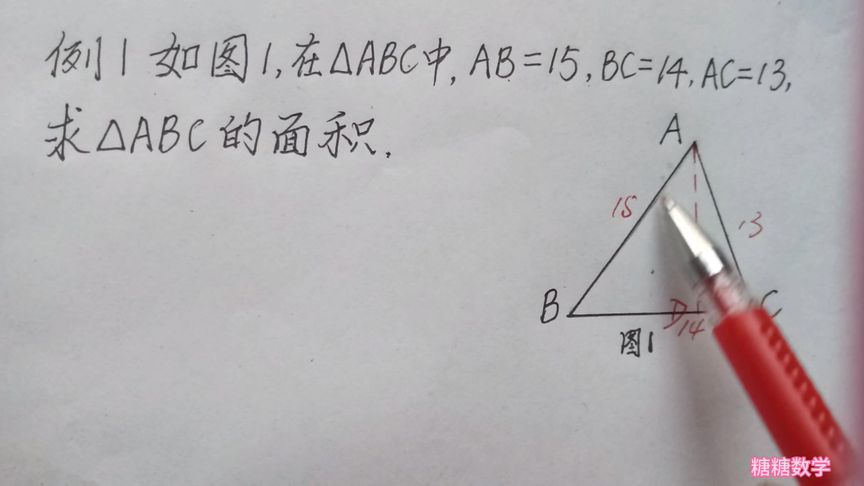 例1 如图1,在△ABC中,AB=15,BC=14,AC=13,
求△ABC的面积.
A
15
13
B
D
C
14
图1
糖糖数学